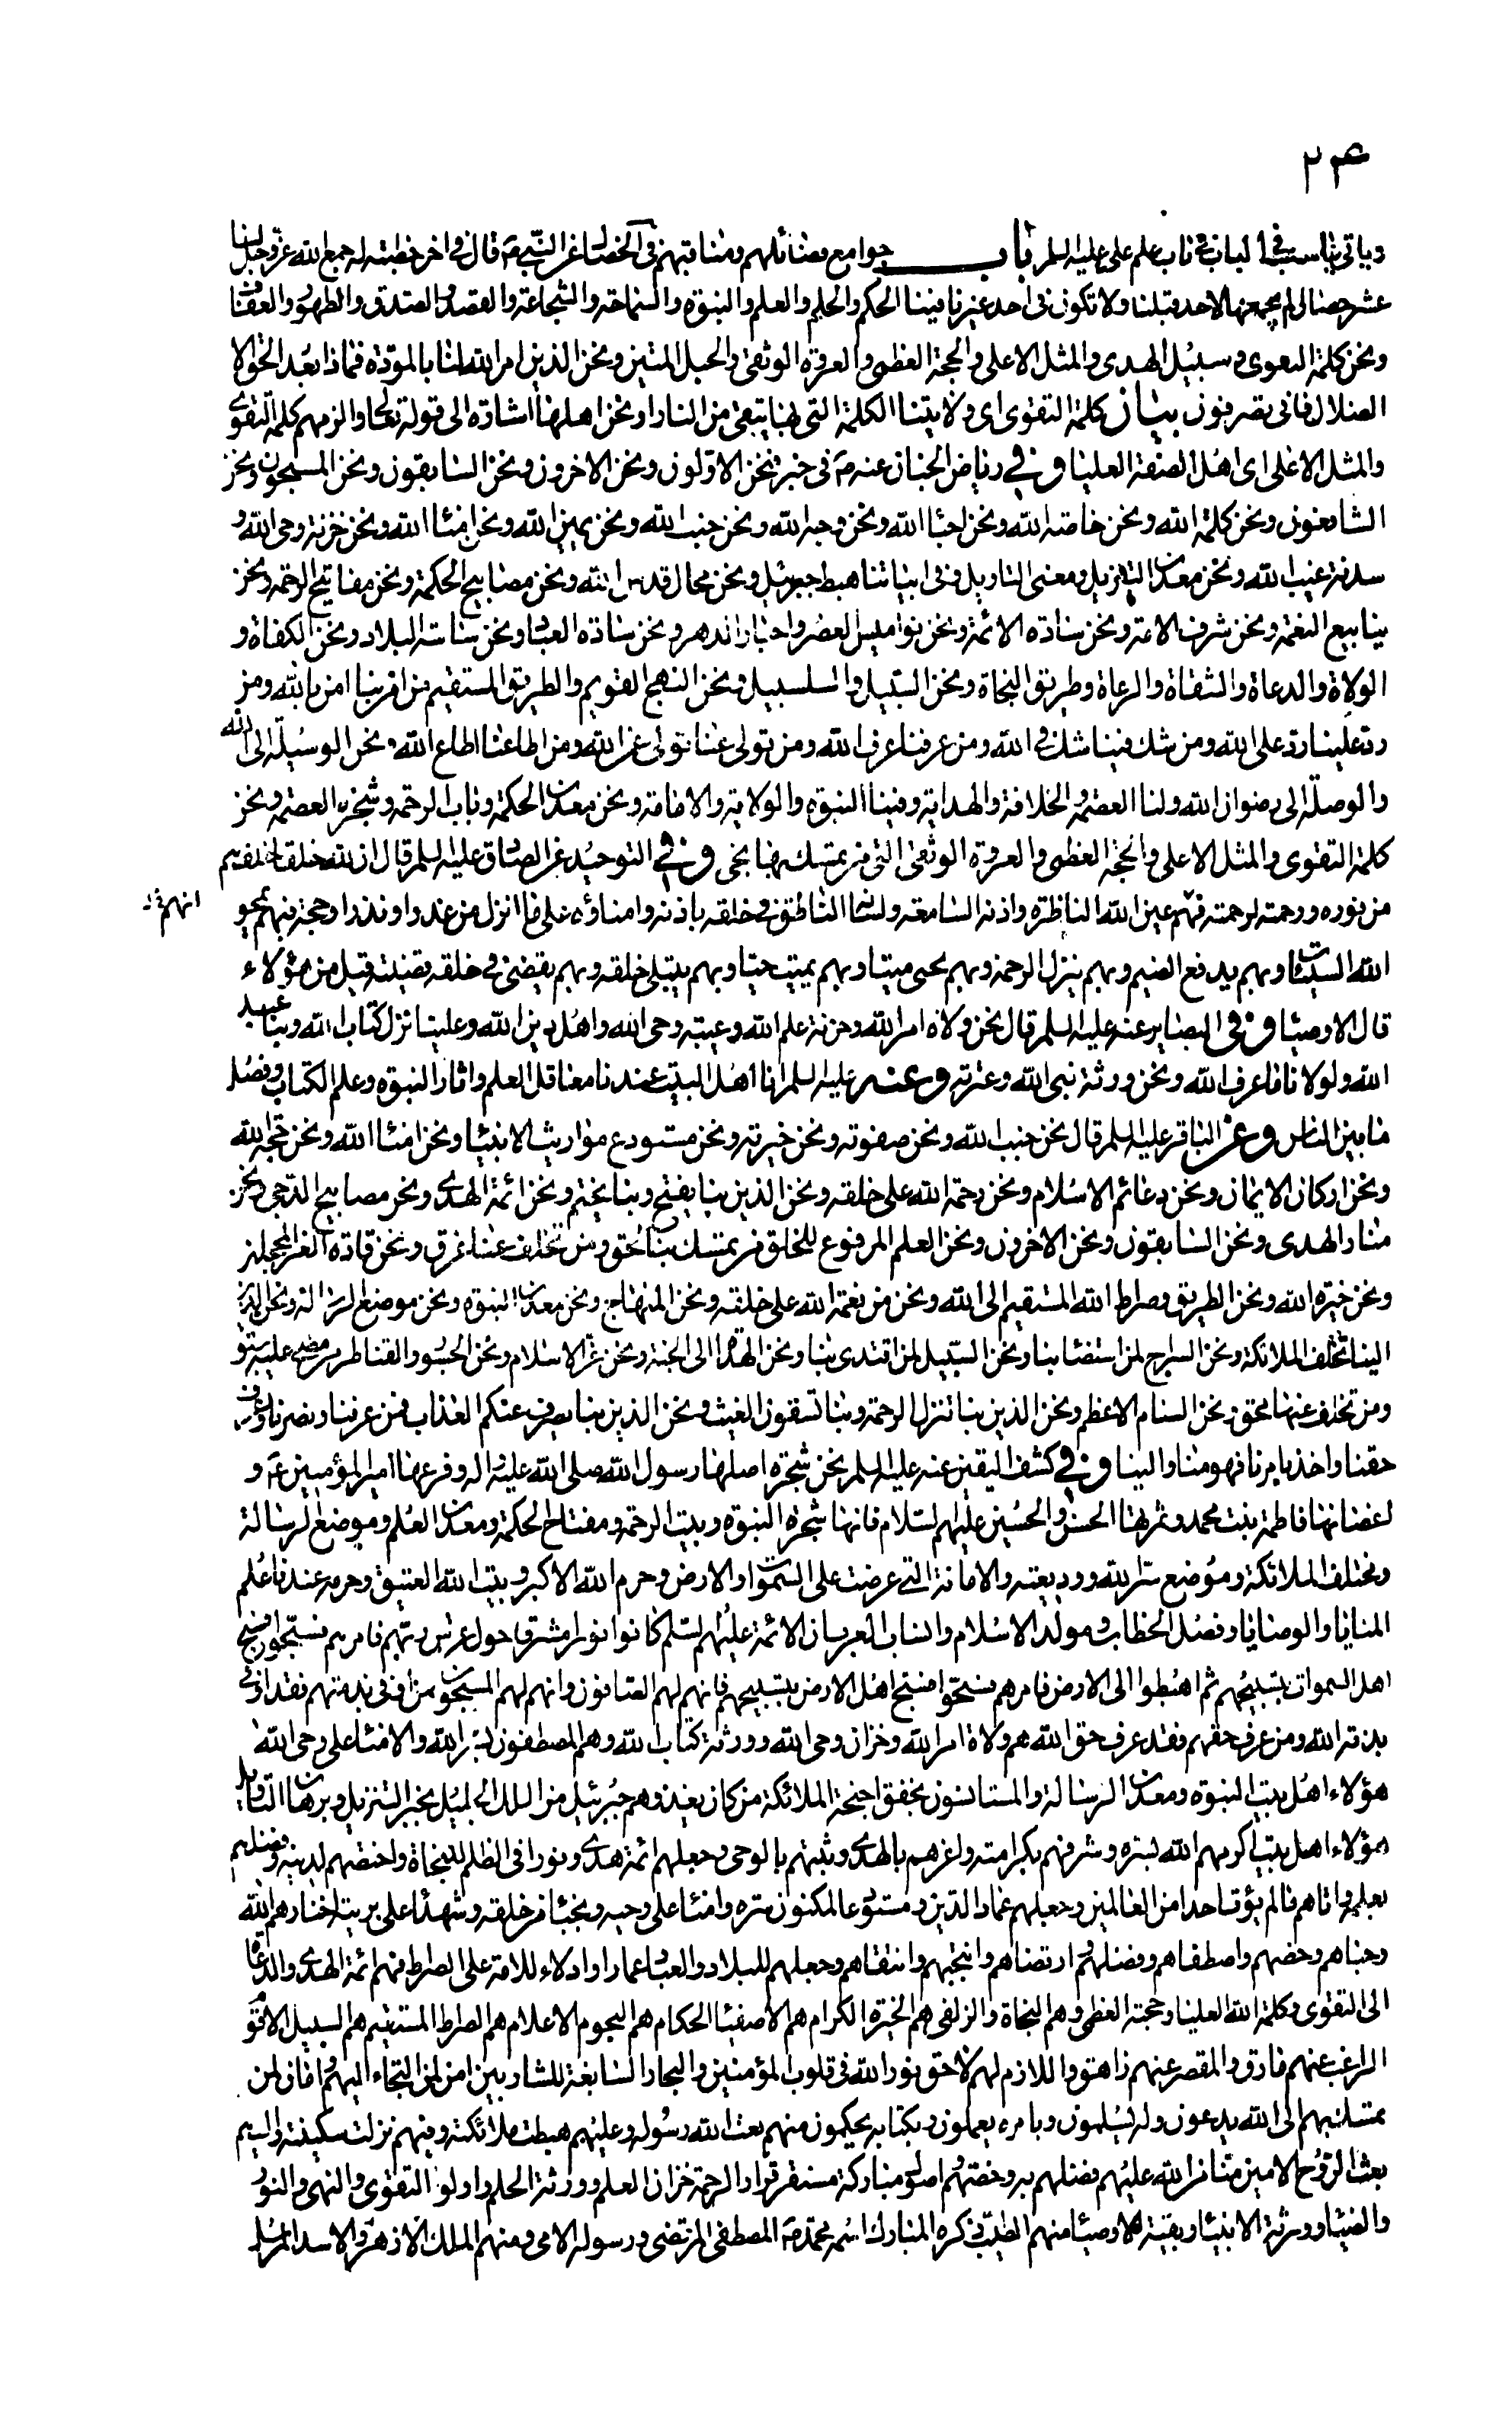 ٢٤
وياتي ما يناسب في الباب في باب علم علي عليه السلم باب جوامع فضائلهم ومناقبهم في الخصال عن النبي ص قال في اخر خطبته له جمع الله عز وجل لنا
عشر خصال لم يجمعها لاحد قبلنا ولا تكون في احد غيرنا فينا الحكم والحلم والعلم والنبوة والسماحة والشجاعة والقصد والصدق والطهور والعفاف
ونحن كلمة التقوى وسبيل الهدى والمثل الاعلى والحجة العظمى والعروة الوثقى والحبل المتين ونحن الذين امر الله لنا بالمودة فماذا بعد الحق الا
الضلال فانى تصرفون بيان كلمة التقوى اي ولايتنا الكلمة التي بها يتقى من النار او نحن اهلها اشارة الى قوله تعالى والزمهم كلمة التقوى
والمثل الاعلى اي اهل الصفة العليا و في رياض الجنان عنه ص في خبر نحن الاولون ونحن الاخرون ونحن السابقون ونحن المسبحون ونحن
الشافعون ونحن كلمة الله ونحن خاصة الله ونحن احباء الله ونحن وجه الله ونحن جنب الله ونحن يمين الله ونحن امناء الله ونحن خزنة وحي الله و
سدنة غيب الله ونحن معدن التنزيل ومعنى التاويل وفي ابياتنا هبط جبرئيل ونحن محال قدس الله ونحن مصابيح الحكمة ونحن مفاتيح الرحمة ونحن
ينابيع النعمة ونحن شرف الامة ونحن سادة الائمة ونحن نواميس العصر واحبار الدهر ونحن سادة العباد ونحن ساسة البلاد ونحن الكفاة و
الولاة والدعاة والسقاة والرعاة وطريق النجاة ونحن السبيل والسلسبيل ونحن النهج القويم والطريق المستقيم من امن بنا امن بالله ومن
رد علينا رد على الله ومن شك فينا شك في الله ومن عرفنا عرف الله ومن تولى عنا تولى عن الله ومن اطاعنا اطاع الله ونحن الوسيلة الى الله
والوصلة الى رضوان الله ولنا العصمة والخلافة والهداية وفينا النبوة والولاية والامامة ونحن معدن الحكمة وباب الرحمة وشجرة العصمة ونحن
كلمة التقوى والمثل الاعلى والحجة العظمى والعروة الوثقى التي من تمسك بها نجى و في التوحيد عن الصادق عليه السلم قال ان لله خلقا خلقهم
من نوره ورحمته لرحمته فهم عين الله الناظرة واذنه السامعة ولسانه الناطق في خلقه باذنه وامناؤه على ما انزل من عذر او نذر او حجة فبهم يمحو
الله السيئات وبهم يدفع الضيم وبهم ينزل الرحمة وبهم يحيى ميتا وبهم يميت حيا وبهم يبتلي خلقه وبهم يقضى في خلقه قضيته قيل من هؤلاء
قال الاوصياء و في البصاير عنه عليه السلم قال نحن ولاة امر الله وخزنة علم الله وعيبة وحي الله واهل دين الله وعلينا نزل كتاب الله وبنا عبد
الله ولولانا ما عرف الله ونحن ورثة نبي الله وعترته و عنه عليه السلم انا اهل البيت عندنا معاقل العلم واثار النبوة وعلم الكتاب وفصل
ما بين الناس و عن الباقر عليه السلم قال نحن جنب الله ونحن صفوته ونحن خيرته ونحن مستودع مواريث الانبياء ونحن امناء الله ونحن حجة الله
ونحن اركان الايمان ونحن دعائم الاسلام ونحن رحمة الله على خلقه ونحن الذين بنا يفتح وبنا يختم ونحن ائمة الهدى ونحن مصابيح الدجى ونحن
منار الهدى ونحن السابقون ونحن الاخرون ونحن العلم المرفوع للخلق من تمسك بنا لحق ومن تخلف عنا غرق ونحن قادة الغر المحجلين
ونحن خيرة الله ونحن الطريق وصراط الله المستقيم الى الله ونحن من نعمة الله على خلقه ونحن المنهاج ونحن معدن النبوة ونحن موضع الرسالة ونحن الذين
الينا تختلف الملائكة ونحن السراج لمن استضاء بنا ونحن السبيل لمن اقتدى بنا ونحن الهداة الى الجنة ونحن عز الاسلام ونحن الجسور والقناطر من مضى عليها سبق
ومن تخلف عنها محق ونحن السنام الاعظم ونحن الذين بنا تنزل الرحمة وبنا تسقون الغيث ونحن الذين بنا يصرف عنكم العذاب فمن عرفنا ونصرنا وعرف
حقنا واخذ بامرنا فهو منا والينا و في كشف اليقين عنه عليه السلم نحن شجرة اصلها رسول الله صلى الله عليه واله وفرعها امير المؤمنين ع و
اغصانها فاطمة بنت محمد وثمرتها الحسن والحسين عليهم السلام فانها شجرة النبوة وبيت الرحمة ومفتاح الحكمة ومعدن العلم وموضع الرسالة
ومختلف الملائكة وموضع سر الله ووديعته والامانة التي عرضت على السموات والارض وحرم الله الاكبر وبيت الله العتيق وحرمه عندنا علم
المنايا والوصايا وفصل الخطاب ومولد الاسلام وانساب العرب ان الائمة عليهم السلم كانوا نورا مشرقا حول عرش ربهم فامرهم فسبحوا فسبح
اهل السموات بتسبيحهم ثم اهبطوا الى الارض فامرهم فسبحوا فسبح اهل الارض بتسبيحهم فانهم لهم الصافون وانهم لهم المسبحون فمن اوفى بذمتهم فقد اوفى
بذمة الله ومن عرف حقهم فقد عرف حق الله هم ولاة امر الله وخزان وحي الله وورثة كتاب الله وهم المصطفون بسر الله والامناء على وحي الله
هؤلاء اهل بيت النبوة ومعدن الرسالة والمستانسون بخفق اجنحة الملائكة من كان يغذوهم جبرئيل من الملك الجليل بخبر التنزيل وبرهان التاويل
هؤلاء اهل بيت اكرمهم الله بسره وشرفهم بكرامته واعزهم بالهدى وثبتهم بالوحي وجعلهم ائمة هدى ونورا في الظلم للنجاة واختصهم لدينه وفضلهم
بعلمه واتاهم ما لم يؤت احدا من العالمين وجعلهم عماد الدين ومستودعا لمكنون سره وامناء على وحيه ونجباء من خلقه وشهداء على بريته اختارهم الله
وحباهم وخصهم واصطفاهم وفضلهم وارتضاهم وانتجبهم وانتقاهم وجعلهم للبلاد والعباد عمارا وادلاء للامة على الصراط فهم ائمة الهدى والدعاة
الى التقوى وكلمة الله العليا وحجته العظمى وهم النجاة والزلفى هم الخيرة الكرام هم الاصفياء الحكام هم النجوم الاعلام هم الصراط المستقيم هم السبيل الاقوم
الراغب عنهم مارق والمقصر عنهم زاهق واللازم لهم لاحق نور الله في قلوب المؤمنين والبحار السابغة للشاربين امن لمن التجاء اليهم وامان لمن
تمسك بهم الى الله يدعون وله يسلمون وبامره يعملون وبكتابه يحكمون منهم بعث الله رسوله وعليهم هبطت ملائكته وفيهم نزلت سكينته واليهم
بعث الروح الامين منا من الله عليهم فضلهم به وخصهم واصول مباركة مستقر قرار الرحمة خزان العلم وورثة الحلم واولو التقوى والنهى والنور
والضياء وورثة الانبياء وبقية الاوصياء منهم الطيب ذكره المبارك اسمه محمد ص المصطفى المرتضى ورسوله الامي ومنهم الملك الازهر والاسد المرسل